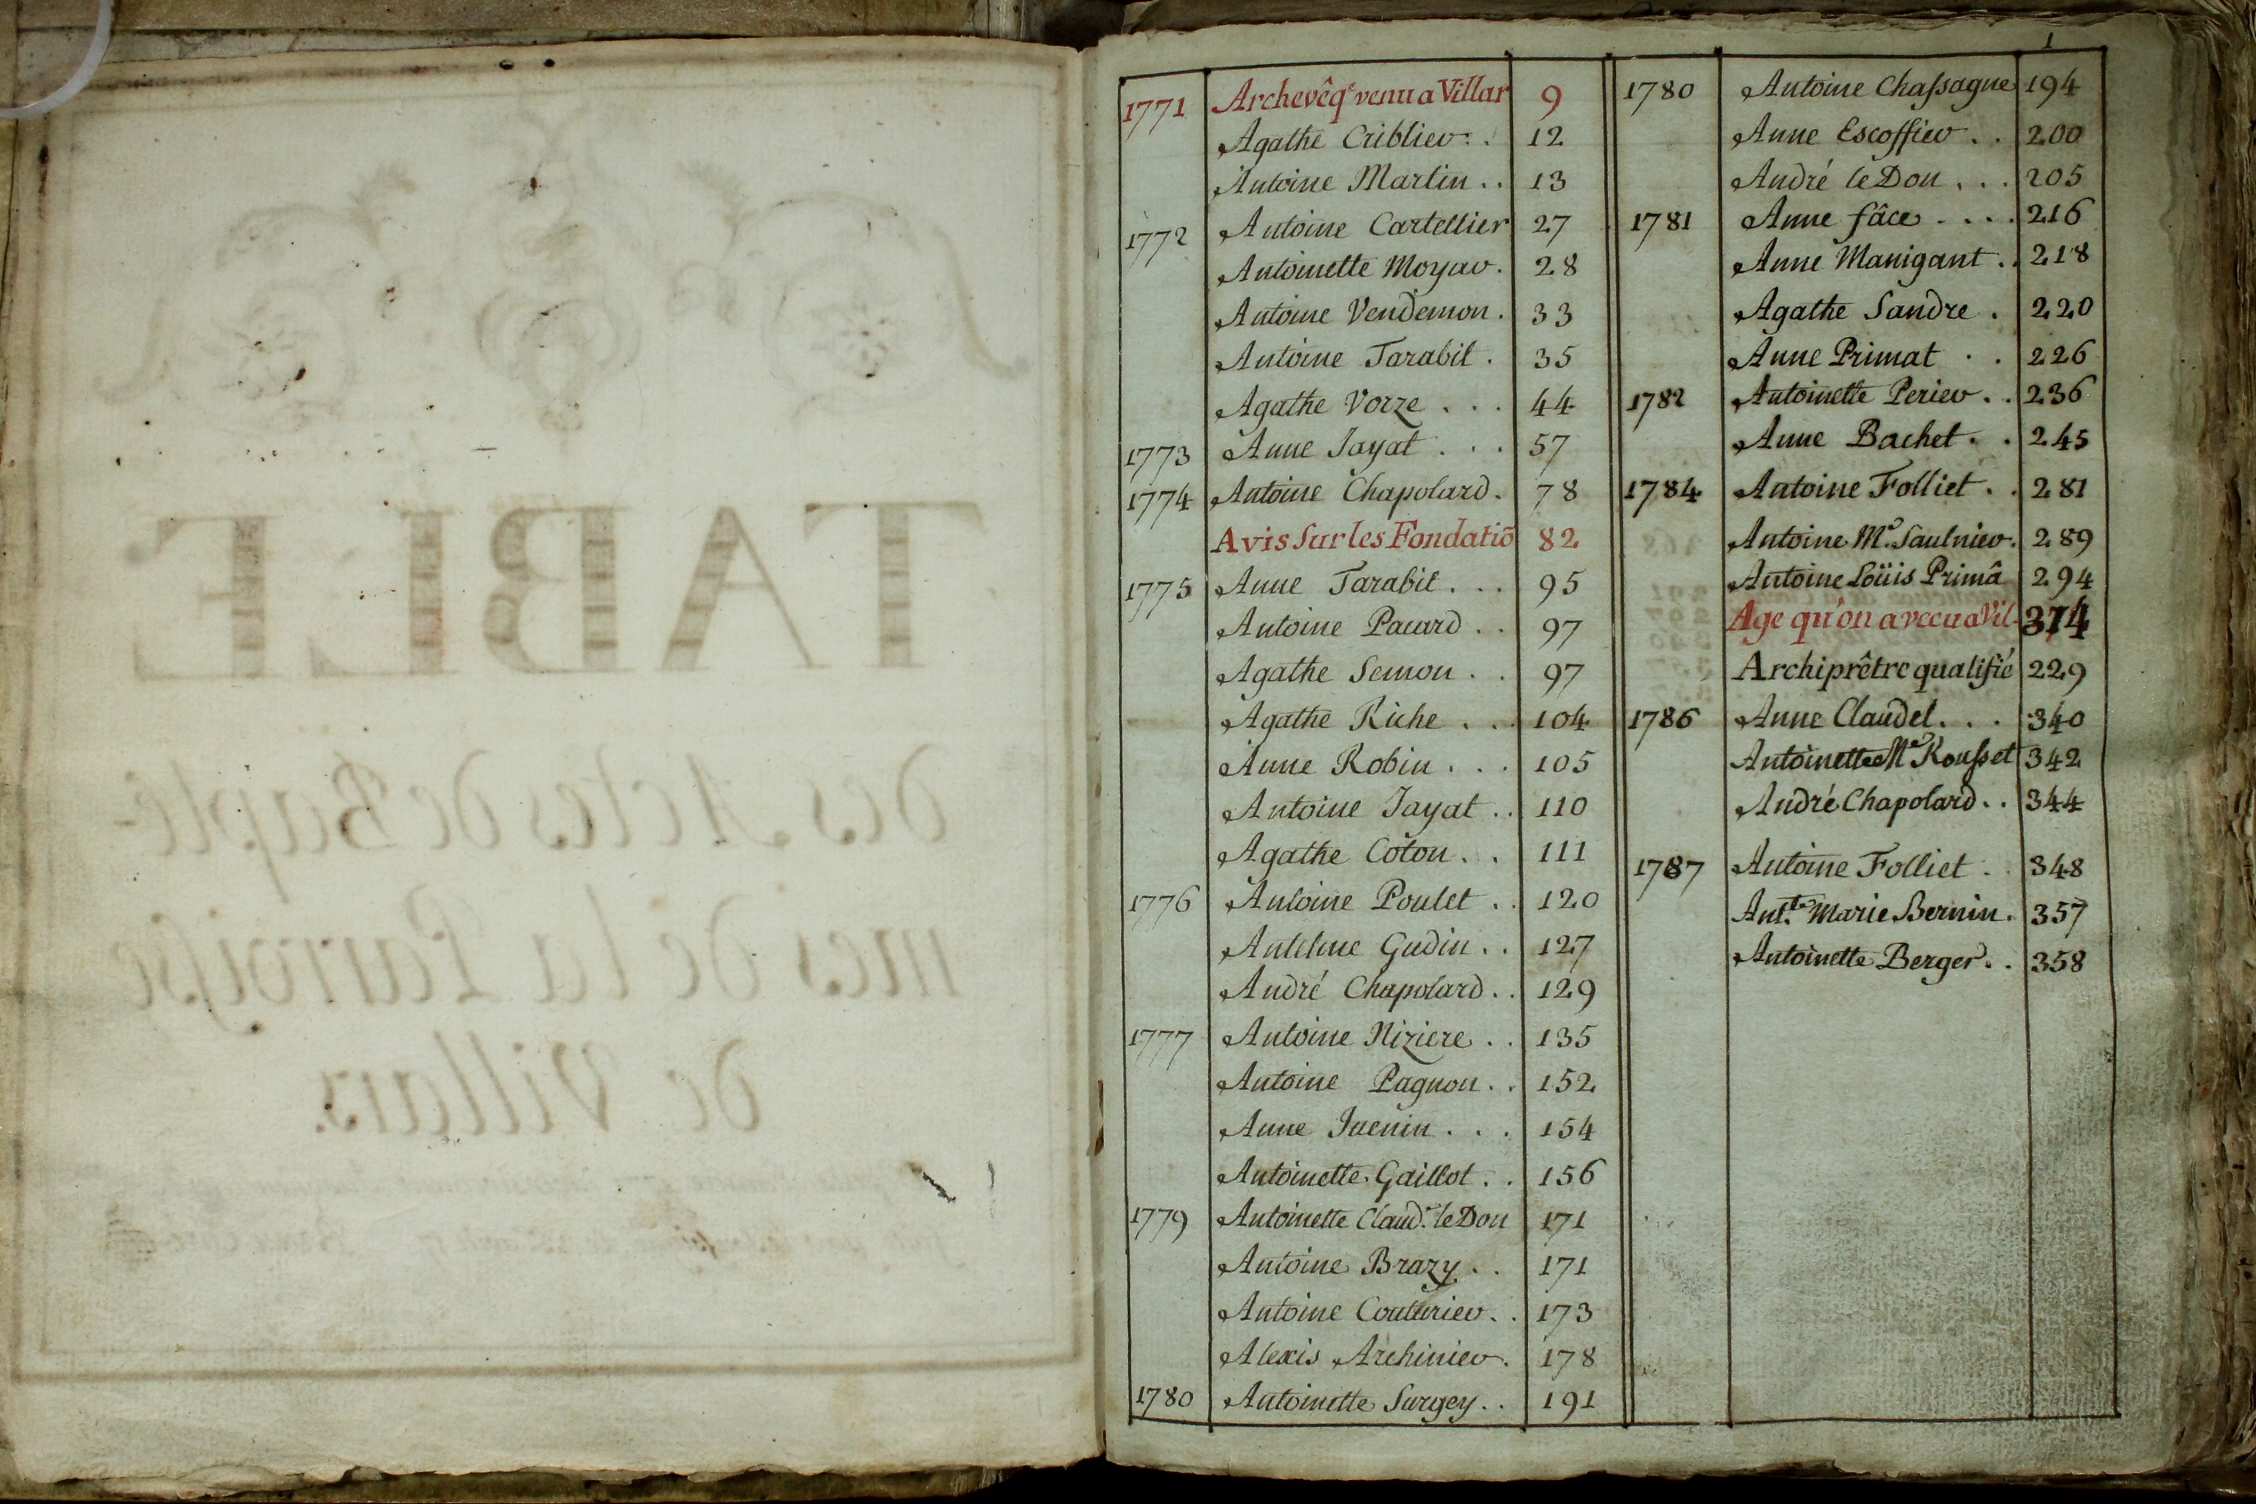 TABLE
des Actes de Baptê-
mes de la Parroisse
de Villars.
1
1771 Archevêq.e venu a Villar 9
Agathe Criblier . . 12
Antoine Martin . . 13
1772 Antoine Cartellier 27
Antoinette Moyar . 28
Antoine Vendemon . 33
Antoine Tarabit . 35
Agathe Vorze . . . 44
1773 Anne Jayat . . . 57
1774 Antoine Chapolard . 78
Avis Sur les Fondatiõ 82
1775 Anne Tarabit . . . 95
Antoine Pacard . . 97
Agathe Semon . . 97
Agathe Riche . . . 104
Anne Robin . . . 105
Antoine Jayat . . 110
Agathe Coton . . 111
1776 Antoine Poulet . . 120
Antelme Gudin . . 127
André Chapolard . . 129
1777 Antoine Niziere . . 135
Antoine Pagnon . . 152
Anne Juenin . . . 154
Antoinette Gaillot . . 156
1779 Antoinette Claud.e le Don 171
Antoine Brazy . . 171
Antoine Couturier . . 173
Alexis Archinier . 178
1780 Antoinette Surgey . . 191
1780 Antoine Chassagne 194
Anne Escoffier . . 200
André le Don . . . 205
1781 Anne fâce . . . . 216
Anne Manigant . . 218
Agathe Sandre . 220
Anne Primat . . 226
1782 Antoinette Perier . . 236
Anne Bachet . . 245
1784 Antoine Folliet . . 281
Antoine M.e Saulnier . 289
Antoine Loüis Primâ 294
Age qu'on a vecu a Vil. 374
Archiprêtre qualifié 229
1786 Anne Claudel . . . 340
Antoinette M.e Rousset 342
André Chapolard . . 344
1787 Antoine Folliet . . 348
Ant.te Marie Bernin . 357
Antoinette Berger . . 358